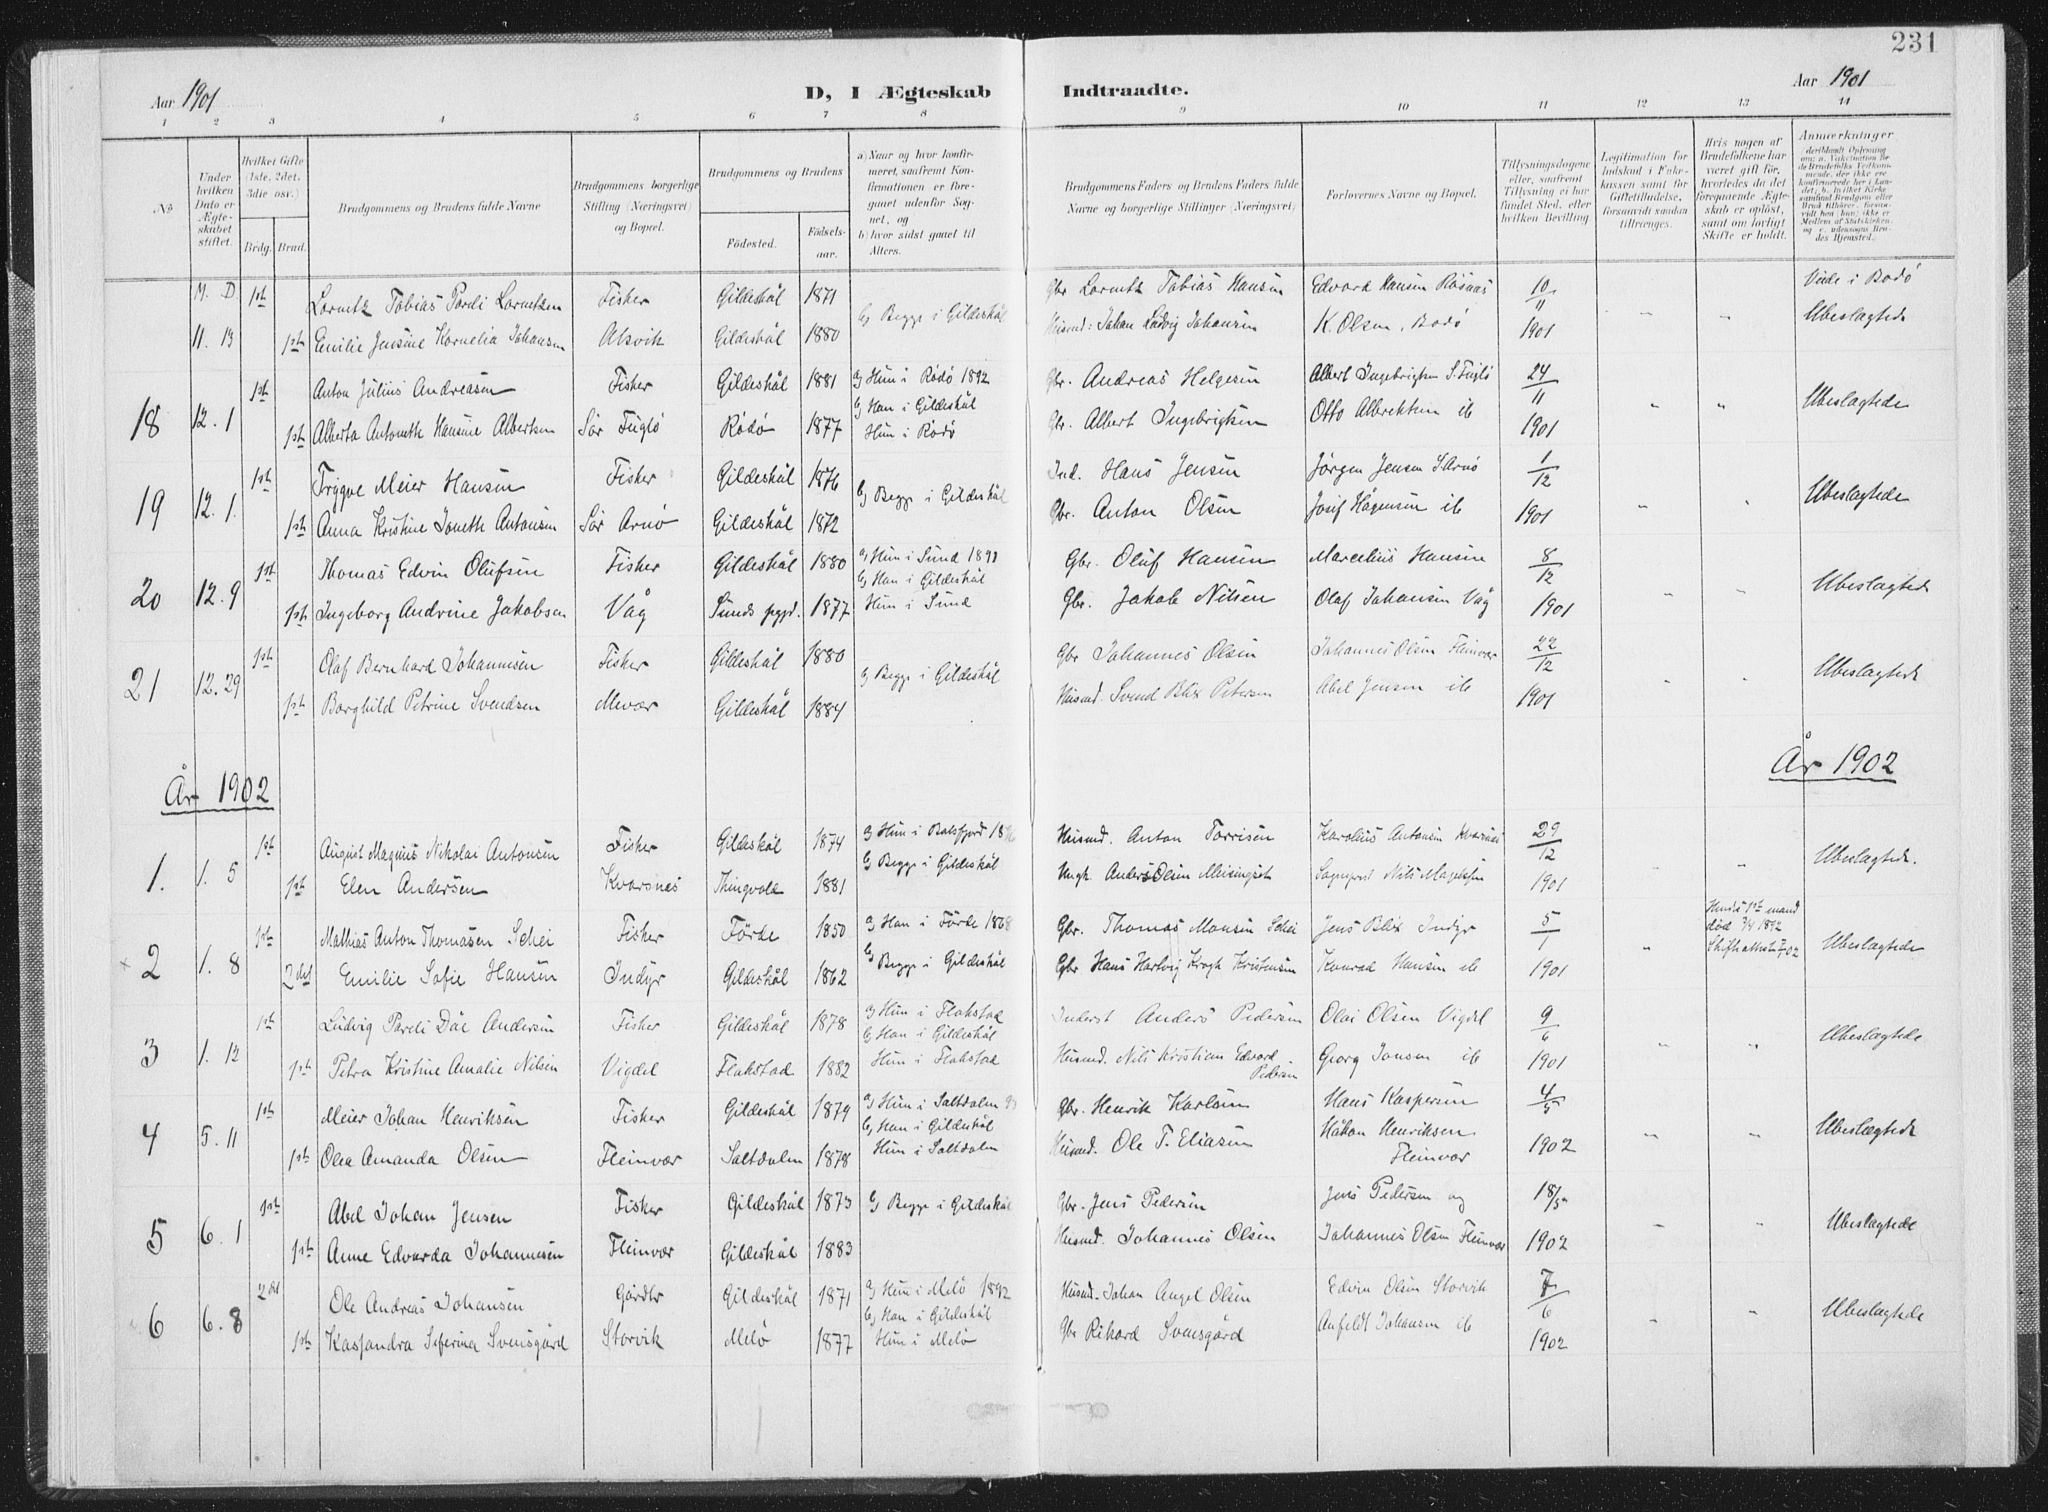 231
Aar 1901
D, I Ægteskab Indtraadte.
Aar 1901
1 2 3 4 5 6 7 8 9 10 11 12 13 14
No
Under hvilken Dato er Ægteskabet stiftet.
Hvilket Gifte (1ste, 2det, 3die osv.)
Brdg. Brud.
Brudgommens og Brudens fulde Navne
Brudgommens borgerlige Stilling (Næringsvei) og Bopæl.
Brudgommens og Brudens
Födested. Födselsaar.
a) Naar og hvor konfirmeret, saafremt Konfirmationen er foregaaet udenfor Sognet, og
b) hvor sidst gaaet til Alters.
Brudgommens Faders og Brudens Faders fulde Navne og borgerlige Stillinger (Næringsvei)
Forlovernes Navne og Bopæl.
Tillysningsdagene eller, saafremt Tillysning ei har fundet Sted, efter hvilken Bevilling.
Legitimation for Indskud i Enkekassen samt for Giftetilladelse, forsaavidt saadan tiltrænges.
Hvis nogen af Brudefolkene har været gift før, hvorledes da det foregaaende Ægteskab er opløst, samt om lovligt Skifte er holdt.
Anmærkninger
M. D. 1ste Lorentz Tobias Pardi Lorentzen Fisker Gildeskål 1871 b) Begge i Gildeskål Gbr Lorentz Tobias Hansen Edvard Hansen Røsnæs 10/11 Viede i Bodø
11. 13 1ste Emilie Jensine Kornelia Johansen Alsvik Gildeskål 1880 Husmd: Johan Ludvig Johansen K. Olsen, Bodø 1901 " " Ubeslægtede
18 12. 1 1ste Anton Julius Andreasen Fisker Gildeskål 1881 a) Hun i Rødø 1892 b) Han i Gildeskål Gbr. Andreas Helgesen Albert Ingebrigtsen S. Fuglø 24/11 " " Ubeslægtede
1ste Alberta Antonette Hansine Albertsen Sør Fuglø Rødø 1877 Hun i Rødø Gbr. Albert Ingebrigtsen Otto Albrektsen ib 1901
19 12. 1. 1ste Trygve Meier Hansen Fisker Gildeskål 1876 b) Begge i Gildeskål Ind. Hans Jensen Jørgen Jensen S. Arnø 1/12 " " Ubeslægtede
1ste Anna Kristine Jonette Antonsen Sør Arnø Gildeskål 1872 Gbr. Anton Olsen Josif Hågensen ib 1901
20 12. 9 1ste Thomas Edvin Olufsen Fisker Gildeskål 1880 a) Hun i Sund 1891 b) Han i Gildeskål Gbr. Oluf Hansen Marcelius Hansen 8/12 " " Ubeslægtede
1ste Ingeborg Andrine Jakobsen Våg Sunds pgjd. 1877 Hun i Sund Gbr. Jakob Nilsen Olaf Johansen Våg 1901
21 12. 29 1ste Olaf Bernhard Johannesen Fisker Gildeskål 1880 b) Begge i Gildeskål Gbr Johannes Olsen Johannes Olsen Fleinvær 22/12 " " Ubeslægtede
1ste Borghild Petrine Svendsen Mevær Gildeskål 1884 Husmd. Svend Blix Petersen Abel Jensen ib 1901
År 1902 År 1902
1. 1. 5 1ste August Magnus Nikolai Antonsen Fisker Gildeskål 1874 a) Hun i Balsfjord b) Begge i Gildeskål Husmd. Anton Torrisen Karolius Antonsen Kvarsnæs 29/12 " " Ubeslægtede.
1ste Elen Andersen Kvarsnæs Thingvold 1881 Ungk. Anders Olsen Meisingset Sogneprest Nils Magelssen 1901
× 2 1. 8 1ste Mathias Anton Thomasen Schei Fisker Förde 1850 a) Han i Förde 1868 b) Begge i Gildeskål Gbr. Thomas Monsen Schei Jens Blix Indyr 5/1 " Hendes 1ste mand død 7/4 1892 Skifteattest 7/1 02 Ubeslægtede
2det Emilie Sofie Hansen Indyr Gildeskål 1862 Gbr Hans Hartvig Krogh Kristensen Konrad Hansen ib 1901
3 1. 12 1ste Ludvig Pareli Dåe Andersen Fisker Gildeskål 1878 a) Hun i Flakstad b) Han i Gildeskål Inderst Anders Pedersen Olai Olsen Vigdel 9/6 " " Ubeslægtede
1ste Petra Kristine Amalie Nilsen Vigdel Flakstad 1882 Hun i Flakstad Husmd. Nils Kristian Edvard Pedersen Georg Jonsen ib 1901
4 5. 11 1ste Meier Johan Henriksen Fisker Gildeskål 1879 a) Hun i Saltdalen 93 b) Han i Gildeskål Gbr. Henrik Karlsen Hans Kaspersen 4/5 " " Ubeslægtede
1ste Olea Amanda Olsen Fleinvær Saltdalen 1878 Hun i Saltdalen Husmd. Ole T. Eliasen Håkon Henriksen Fleinvær 1902
5 6. 1 1ste Abel Johan Jensen Fisker Gildeskål 1873 b) Begge i Gildeskål Gbr. Jens Pedersen Jens Pedersen og 18/5 " " Ubeslægtede
1ste Anne Edvarda Johannesen Fleinvær Gildeskål 1883 Husmd. Johannes Olsen Johannes Olsen Fleinvær 1902
6 6. 8 2det Ole Andreas Johansen Gårdbr Gildeskål 1871 a) Hun i Melö 1892 b) Han i Gildeskål Husmd. Johan Angel Olsen Edvin Olsen Storvik 7/6 " " Ubeslægtede
1ste Kassandra Seferina Svensgård Storvik Melö 1877 Hun i Melö Gbr Rikard Svensgård Anfeldt Johansen ib 1902